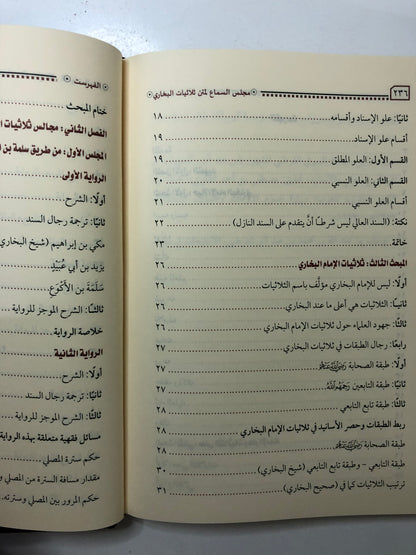 ٢٣٦
مجلس السماع لمتن ثلاثيات البخاري
ثانيًا: علو الإسناد وأقسامه ١٨
أقسام علو الإسناد ١٩
القسم الأول: العلو المطلق ١٩
القسم الثاني: العلو النسبي ٢٠
أقسام العلو النسبي ٢٠
نكتة: (السند العالي ليس شرطًا أنْ يتقدم على السند النازل) ٢٢
خاتمة ٢٣
المبحث الثالث: ثلاثيات الإمام البخاري ٢٦
أولًا: ليس للإمام البخاري مؤلَّف باسم الثلاثيات ٢٦
ثانيًا: الثلاثيات هي أعلى ما عند البخاري ٢٦
ثالثًا: جهود العلماء حول ثلاثيات الإمام البخاري ٢٦
رابعًا: رجال الطبقات في ثلاثيات البخاري ٢٧
أولًا: طبقة الصحابة ٢٧
ثانيًا: طبقة التابعين ٢٧
ثالثًا: طبقة تابع التابعي ٢٨
ربط الطبقات وحصر الأسانيد في ثلاثيات الإمام البخاري ٢٨
طبقة الصحابة ٢٨
طبقة التابعي - وطبقة تابع التابعي (شيخ البخاري) ٣٠
ترتيب الثلاثيات كما في (صحيح البخاري) ٣١
الفهرست
ختام المبحث
الفصل الثاني: مجالس ثلاثيات
المجلس الأول: من طريق سلمة بن
الرواية الأولى
أولًا: الشرح
ثانيًا: ترجمة رجال السند
مكي بن إبراهيم (شيخ البخاري
يزيد بن أبي عُبَيْدٍ
سَلَمَةَ بن الأَكْوَعِ
ثالثًا: الشرح الموجز للرواية
خلاصة الرواية
الرواية الثانية
أولًا: الشرح
ثانيًا: ترجمة رجال السند
ثالثًا: الشرح الموجز للرواية
مسائل فقهية متعلقة بهذه الرواية
حكم سترة المصلي
مقدار مسافة السترة من المصلي
حكم المرور بين المصلي وسترته